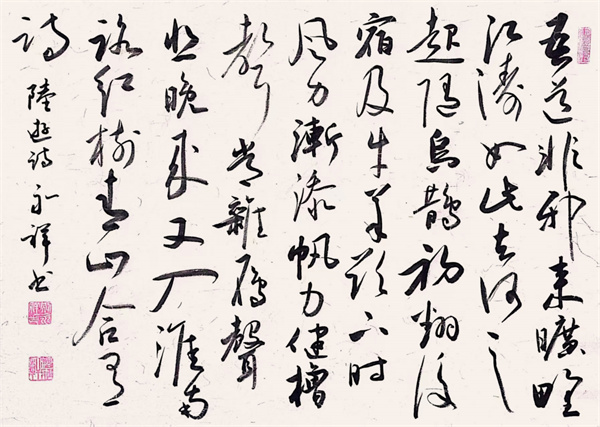 吾道非邪来曠野
江濤如此去何之
起隨烏鵲初翻後
宿及牛羊欲下时
風力漸添帆力健櫓
聲常雜雁聲
悲晚来又入淮南
路紅樹青山合有
詩
陸游詩 永祥书